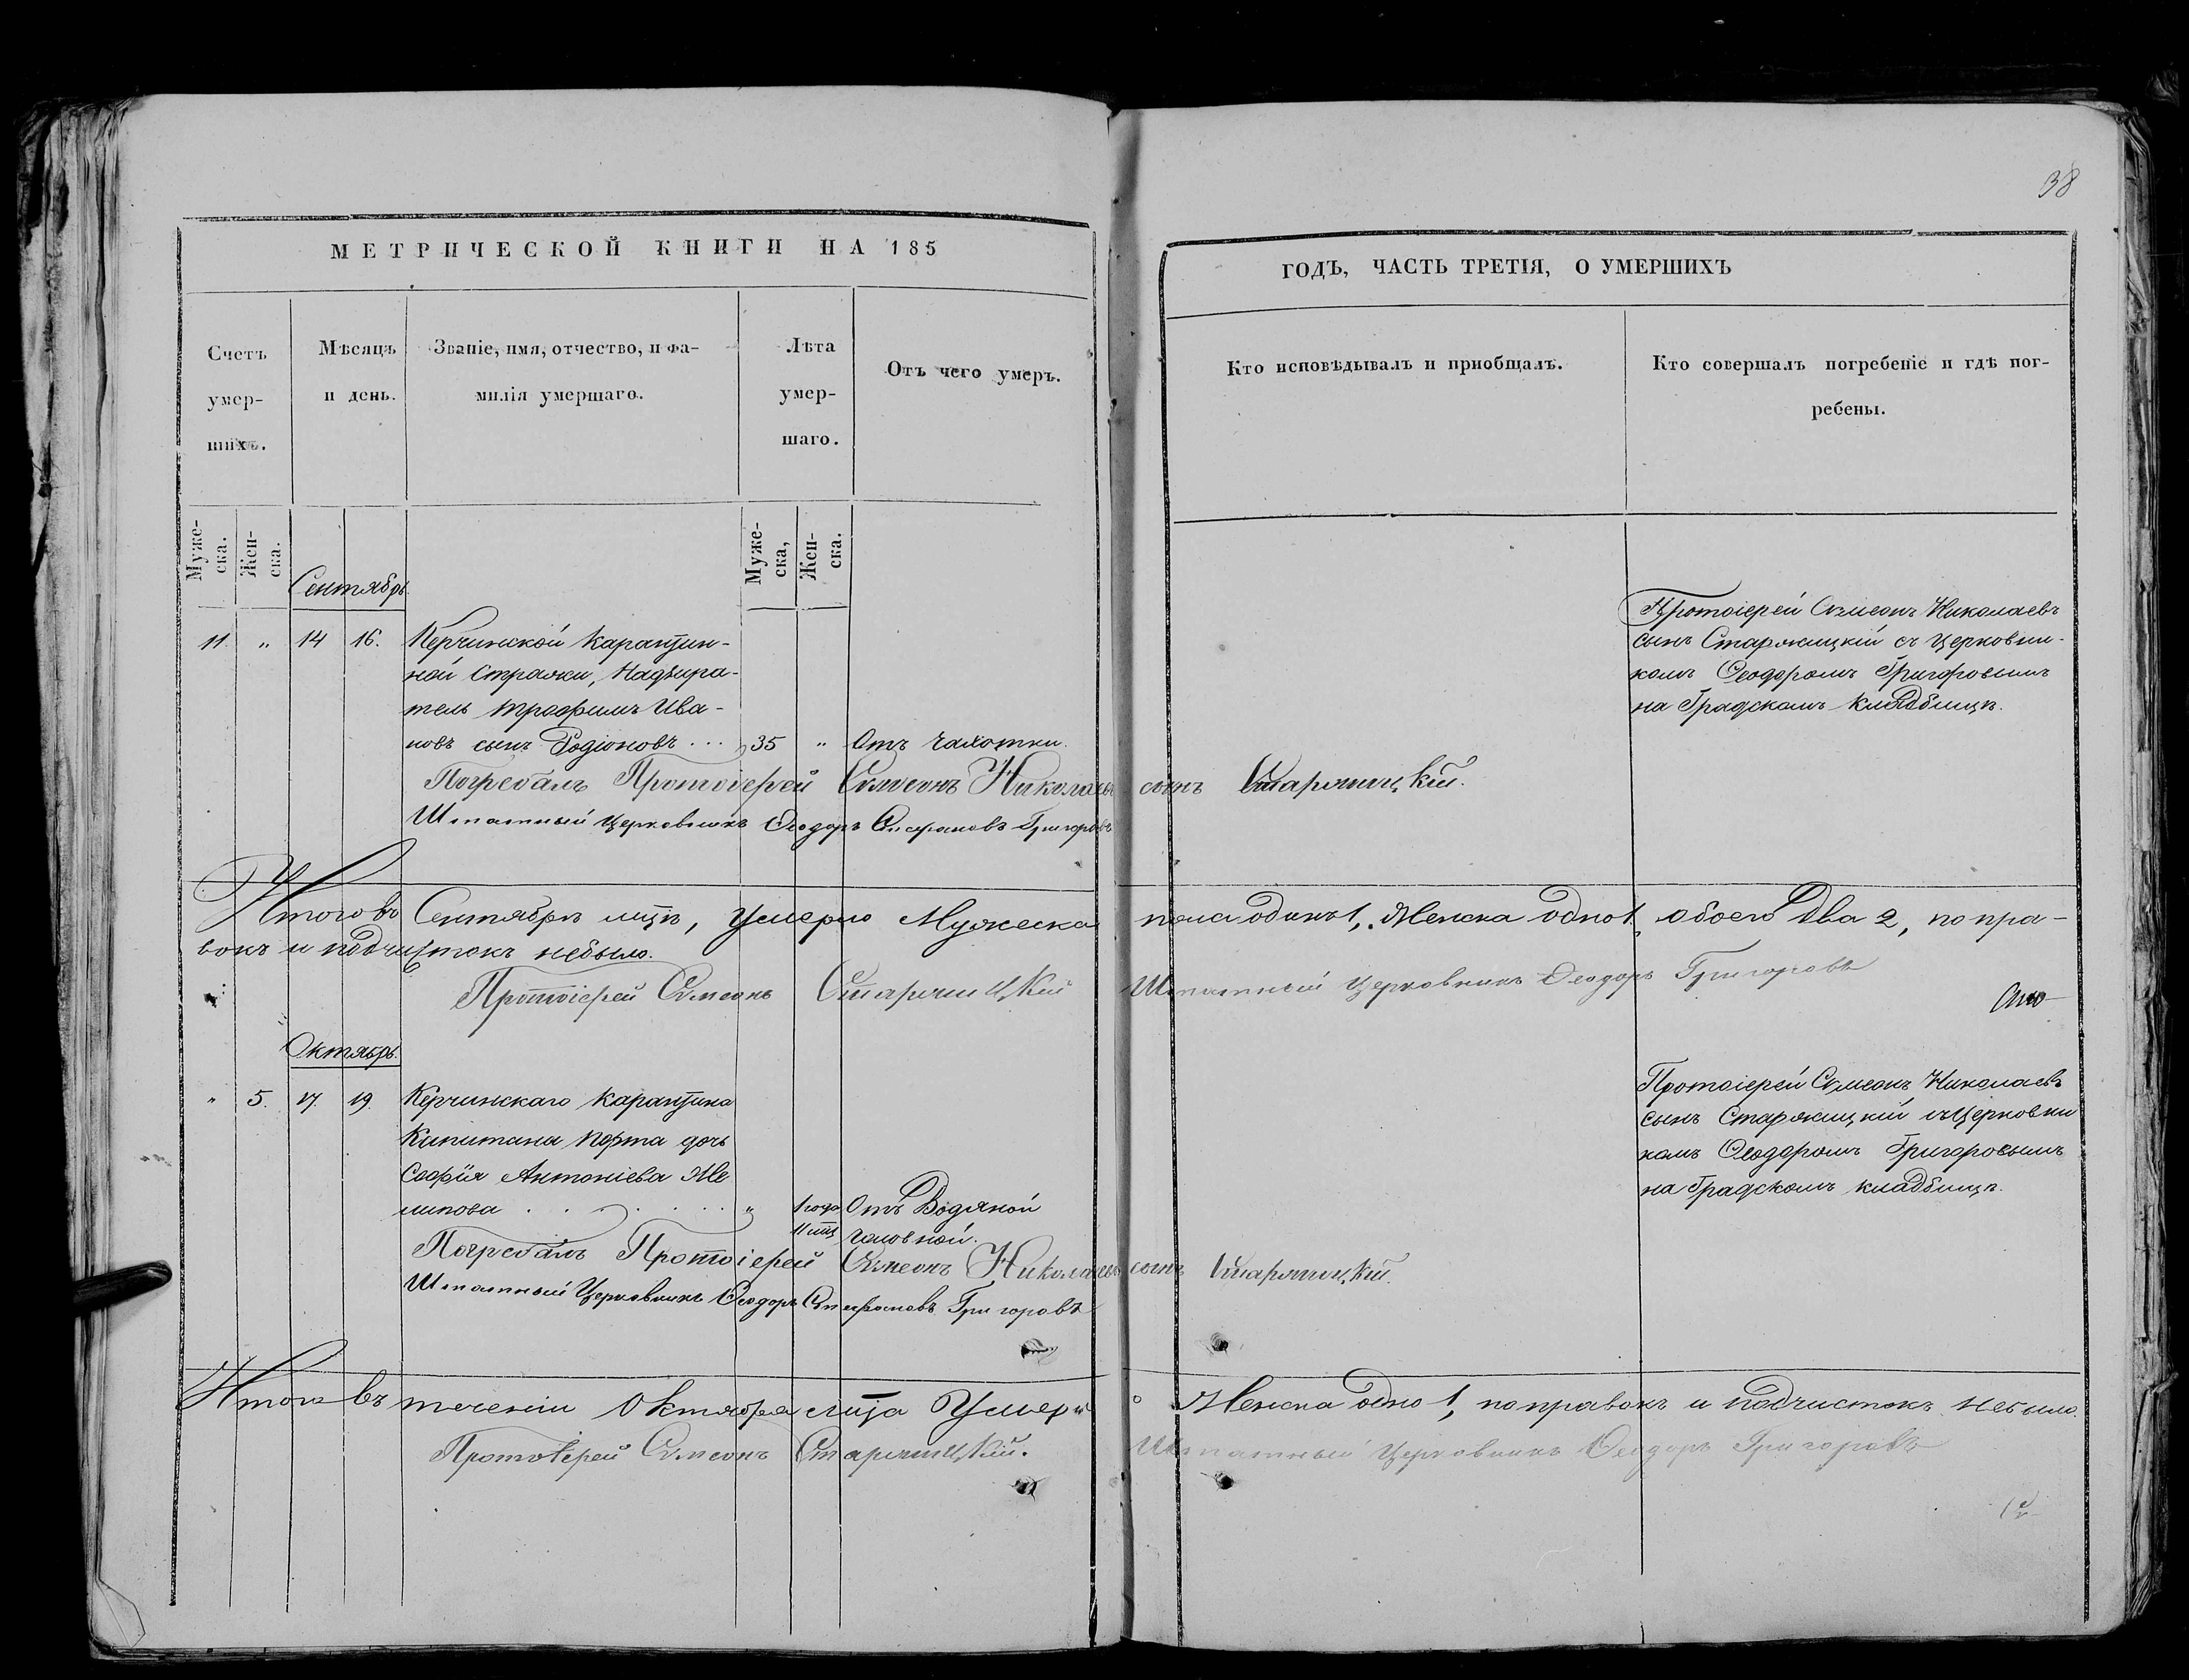 38
МЕТРИЧЕСКОЙ КНИГИ НА 185
ГОДЪ, ЧАСТЬ ТРЕТІЯ, О УМЕРШИХЪ
Счетъ
умер-
шихъ.
Мѣсяцъ
и день.
Званіе, имя, отчество, и фа-
милія умершаго.
Лѣта
умер-
шаго.
Отъ чего умеръ.
Кто исповѣдывалъ и пріобщалъ.
Кто совершалъ погребеніе и гдѣ пог-
ребены.
Муже-
ска.
Жен-
ска.
Муже-
ска,
Жен-
ска.
Сентябрь.
11. " 14 16. Керчинской карантин-
ной Стражи, Надзира-
тель Трофимъ Ива-
новъ сынъ Родіоновъ ... 35 " Отъ чахотки.
Протоіерей Сѵмеонъ Николаевъ
сынъ Старжицкій съ церковни-
комъ Ѳеодоромъ Григоровымъ
на Градскомъ кладбищѣ.
Погребалъ Протоіерей Сѵмеонъ Николаевъ сынъ Старжицкій.
Штатный Церковникъ Ѳеодоръ Стефановъ Григоровъ
Итого въ Сентябрѣ мцѣ, умерло Мужеска пола одинъ 1, Женска одно 1, обоего два 2, попра-
вокъ и подчистокъ небыло.
Протоіерей Сѵмеонъ Старжицкій Штатный Церковникъ Ѳеодоръ Григоровъ
Октябрь.
" 5. 17. 19. Керчинскаго Карантина
Капитана порта дочь
Софія Антоніева Ме
липова . . . . . . " 1 года Отъ Водяной
11 мцъ головной.
Протоіерей Сѵмеонъ Николаевъ
сынъ Старжицкій съ Церковни
комъ Ѳеодоромъ Григоровымъ
на Градскомъ кладбищѣ.
Погребалъ Протоіерей Сѵмеонъ Николаевъ сынъ Старжицкій.
Штатный Церковникъ Ѳеодоръ Стефановъ Григоровъ
Итого въ теченіи Октября мца Умерло Женска одно 1, поправокъ и подчистокъ небыло.
Протоіерей Сѵмеонъ Старжицкій. Штатный Церковникъ Ѳеодоръ Григоровъ